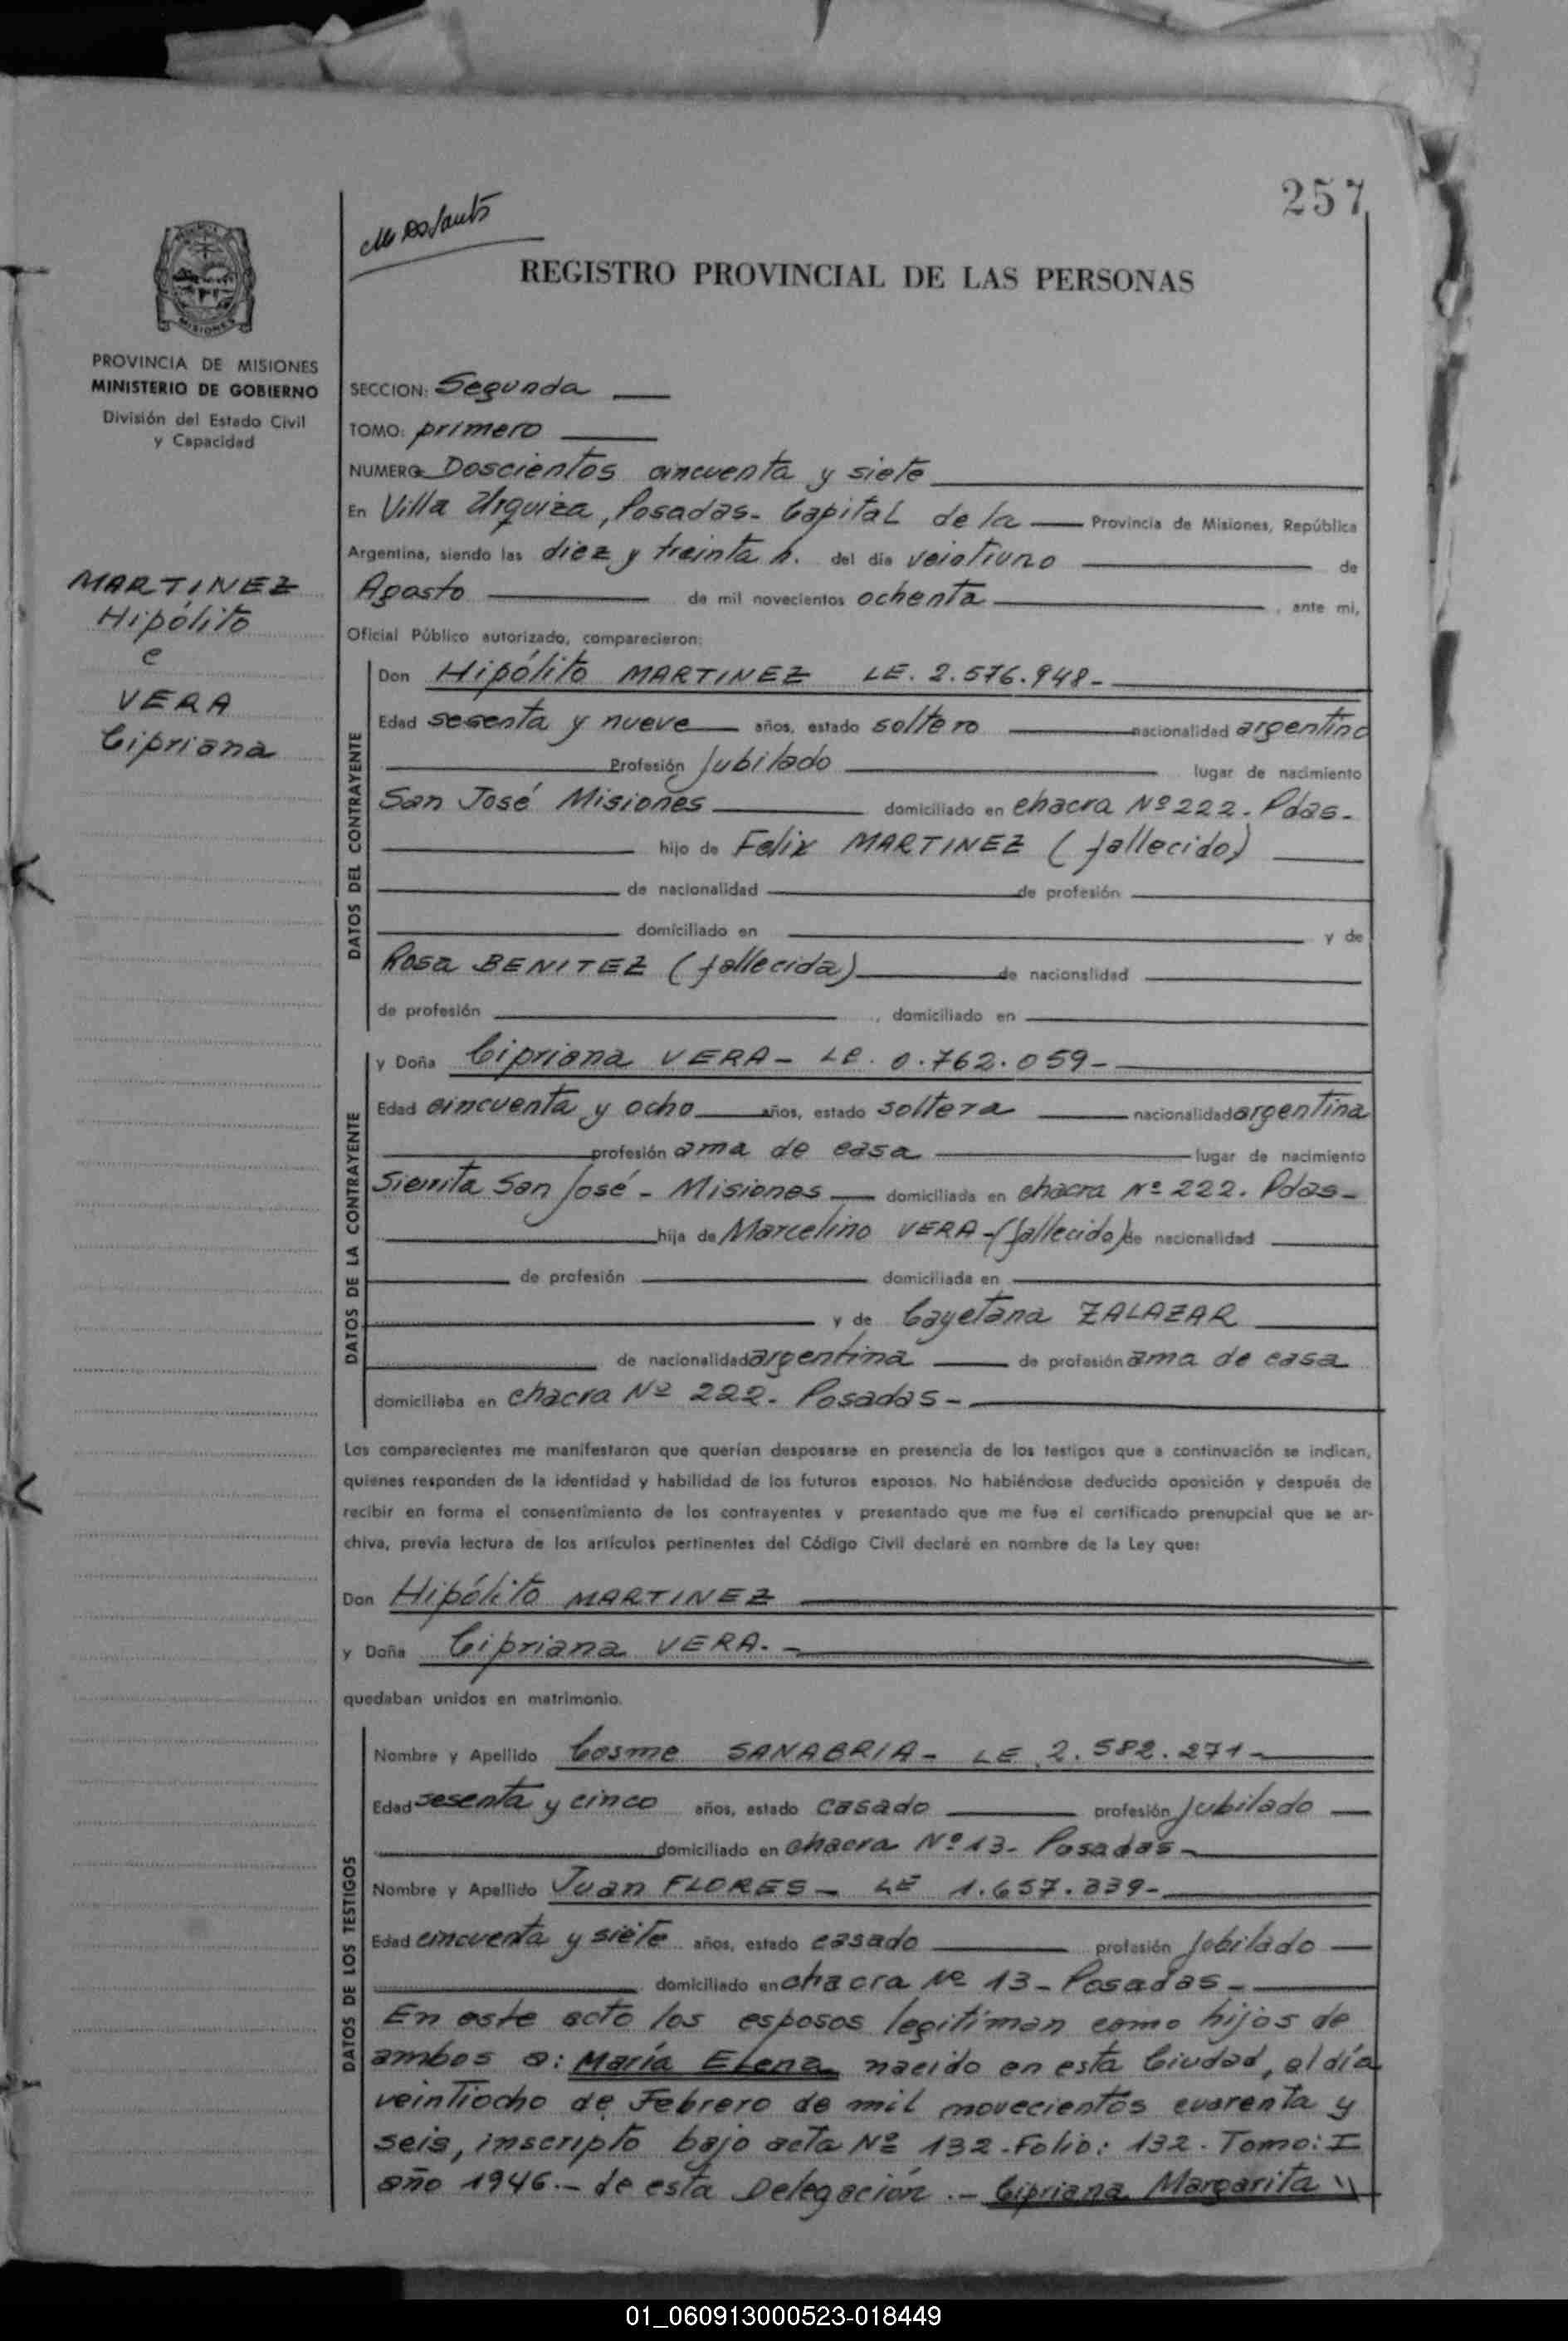 257
REGISTRO PROVINCIAL DE LAS PERSONAS
MISIONES
PROVINCIA DE MISIONES
MINISTERIO DE GOBIERNO
División del Estado Civil
y Capacidad
MARTINEZ
Hipólito
e
VERA
Cipriana
SECCION: Segunda
TOMO: primero
NUMERO Doscientos cincuenta y siete
En Villa Urquiza, Posadas - Capital de la Provincia de Misiones, República
Argentina, siendo las diez y treinta h. del día veintiuno de
Agosto de mil novecientos ochenta, ante mi,
Oficial Público autorizado, comparecieron:
DATOS DEL CONTRAYENTE
Don Hipólito MARTINEZ LE. 2.576.948-
Edad sesenta y nueve años, estado soltero nacionalidad argentino
Profesión Jubilado lugar de nacimiento
San José Misiones domiciliado en chacra Nº 222. Pdas-
hijo de Felix MARTINEZ (fallecido)
de nacionalidad de profesión
domiciliado en y de
Rosa BENITEZ (fallecida) de nacionalidad
de profesión , domiciliado en
DATOS DE LA CONTRAYENTE
y Doña Cipriana VERA - LC. 0.762.059-
Edad cincuenta y ocho años, estado soltera nacionalidad argentina
profesión ama de casa lugar de nacimiento
Sierrita San José - Misiones domiciliada en chacra Nº 222. Pdas-
hija de Marcelino VERA - (fallecido) de nacionalidad
de profesión domiciliada en
y de Cayetana ZALAZAR
de nacionalidad argentina de profesión ama de casa
domiciliaba en chacra Nº 222. Posadas-
Los comparecientes me manifestaron que querían desposarse en presencia de los testigos que a continuación se indican,
quienes responden de la identidad y habilidad de los futuros esposos. No habiéndose deducido oposición y después de
recibir en forma el consentimiento de los contrayentes y presentado que me fue el certificado prenupcial que se ar-
chiva, previa lectura de los artículos pertinentes del Código Civil declaré en nombre de la Ley que:
Don Hipólito MARTINEZ
y Doña Cipriana VERA.-
quedaban unidos en matrimonio.
DATOS DE LOS TESTIGOS
Nombre y Apellido Cosme SANABRIA - LE 2.582.271-
Edad sesenta y cinco años, estado casado profesión Jubilado
domiciliado en chacra Nº 13- Posadas-
Nombre y Apellido Juan FLORES - LE 1.657.339-
Edad cincuenta y siete años, estado casado profesión Jubilado
domiciliado en chacra Nº 13- Posadas-
En este acto los esposos legitiman como hijos de
ambos a: María Elena nacido en esta Ciudad, el día
veintiocho de Febrero de mil novecientos cuarenta y
seis, inscripto bajo acta Nº 132. Folio: 132. Tomo: I
año 1946.- de esta Delegación.- Cipriana Margarita \\
01_060913000523-018449